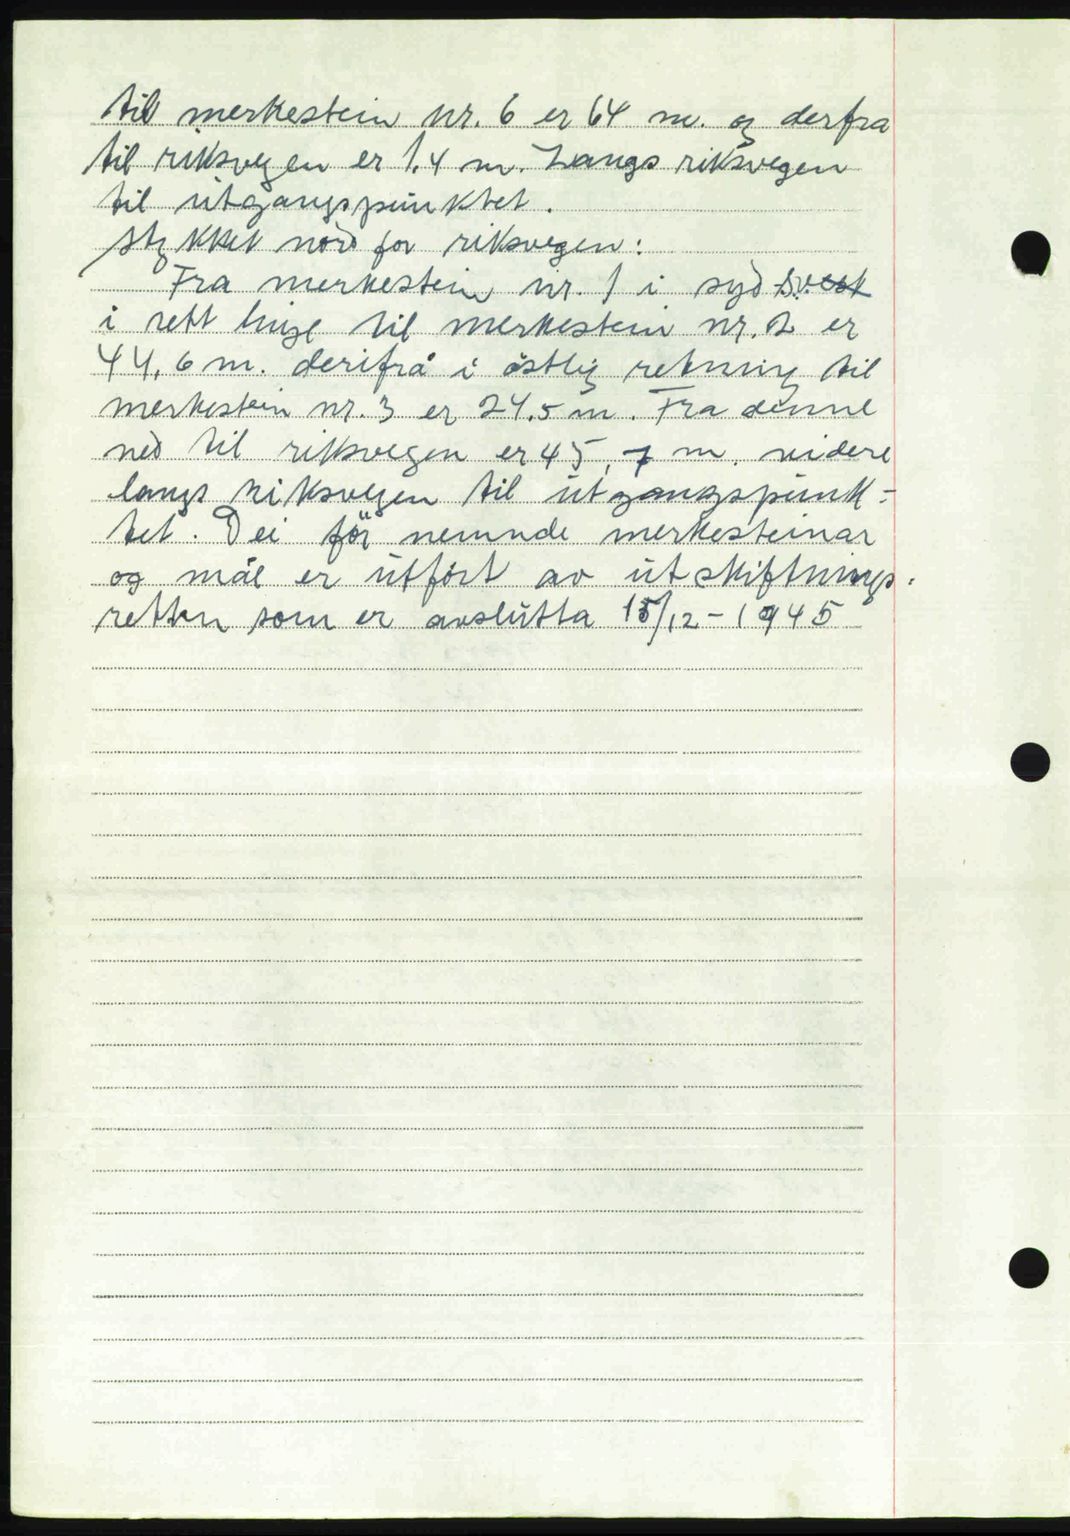 til merkestein nr. 6 er 64 m. og derfra
til riksvegen er 1.4 m. Langs riksvegen
til utgangspunktet.
Stykket nord for riksvegen:
Fra merkestein nr. 1 i syd
i rett linje til merkestein nr. 2 er
44,6 m. derifrå i östlig retning til
merkestein nr. 3 er 24.5 m. Fra denne
ned til riksvegen er 45,7 m. videre
langs riksvegen til utgangspunk-
tet. Dei för nemnde merkesteinar
og mål er utfört av utskiftnings-
retten som er avslutta 15/12-1945